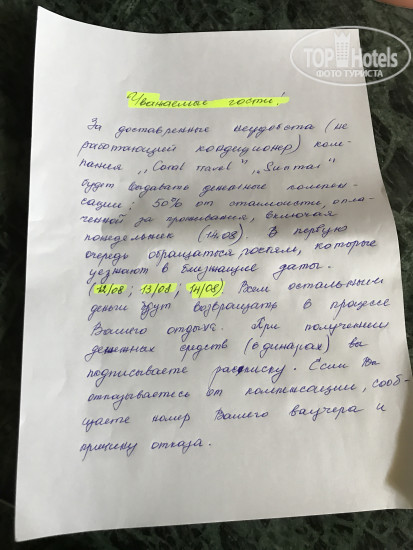 TOPHotels
ФОТО ТУРИСТА
Уважаемые гости!
За доставленные неудобства (не
работающий кондиционер) ком-
пания „Coral travel" „Sunmar"
будет выдавать денежные компен-
сации: 50% от стоимости, опла-
ченной за проживания, включая
понедельник (14.08). В первую
очередь обращаться гостям, которые
уезжают в ближащие даты.
(12/08; 13/08; 14/08) Всем остальным
деньги будут возвращать в процессе
Вашего отдыха. При получении
денежных средств (в динарах) вы
подписываете расписку. Если Вы
отказываетесь от компенсации, сооб-
щаете номер Вашего ваучера и
причину отказа.